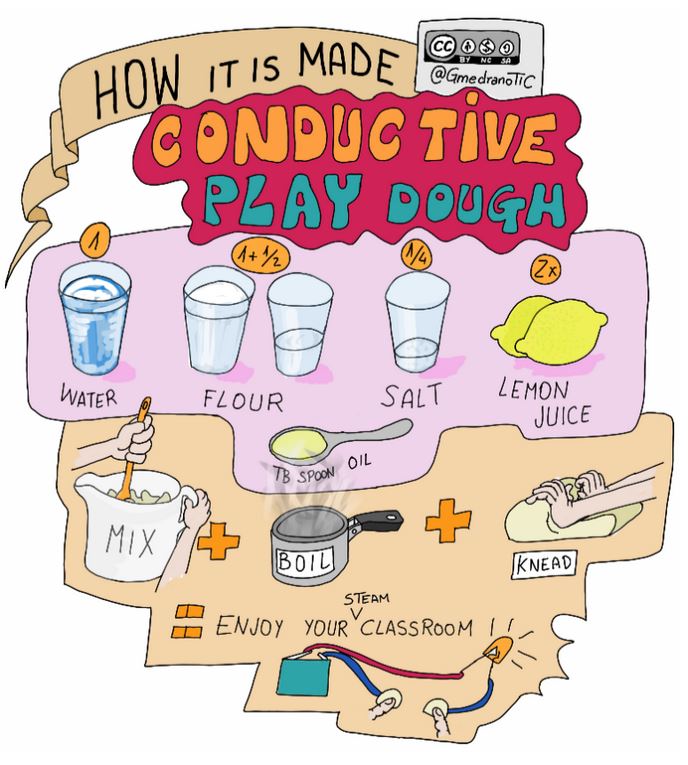 HOW IT IS MADE
CC
BY NC SA
@GmedranoTIC
CONDUCTIVE
PLAY DOUGH
1
1+1/2
1/4
2x
WATER
FLOUR
SALT
LEMON
JUICE
TB SPOON OIL
MIX
+
BOIL
+
KNEAD
=
STEAM
ENJOY YOUR CLASSROOM